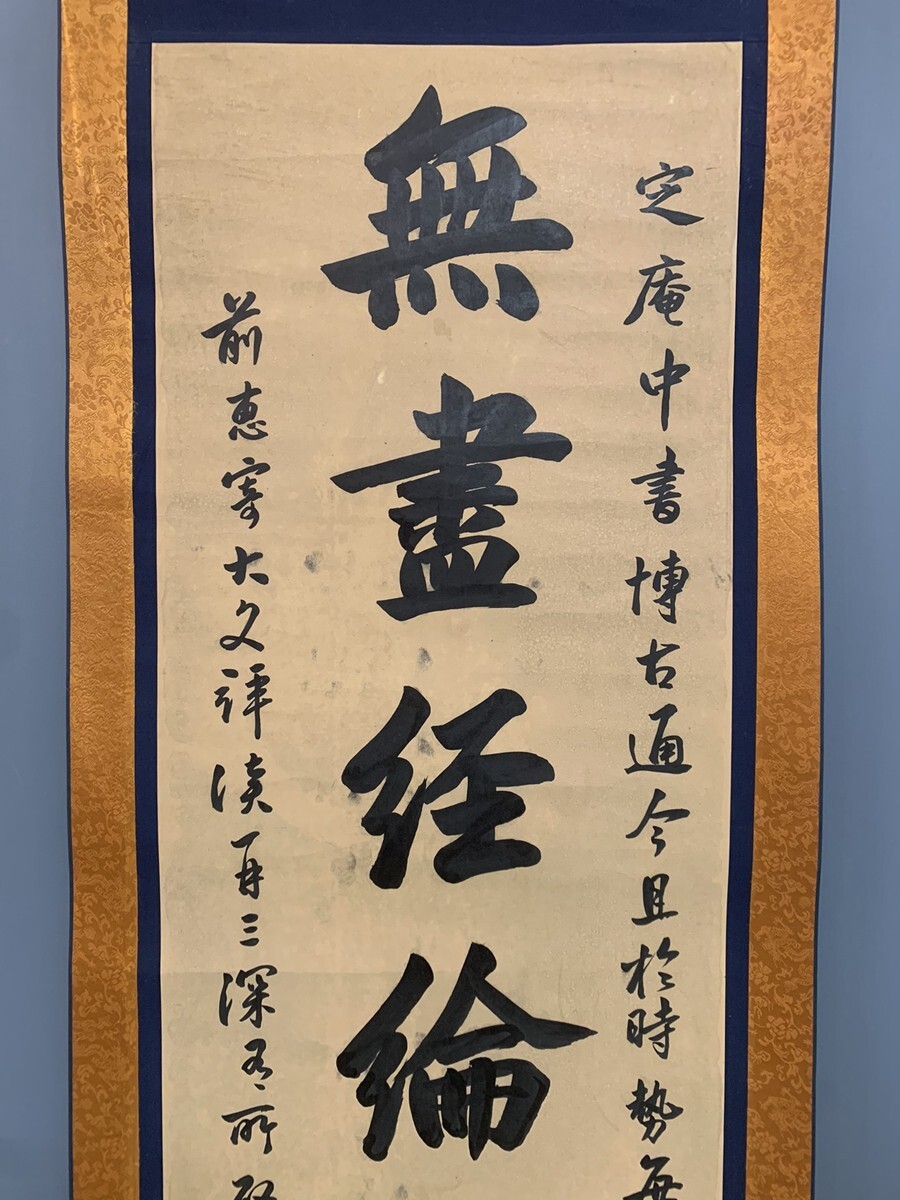 定庵中書博古通今且於時勢每
無盡経綸
前恵寄大文詳读再三深有所